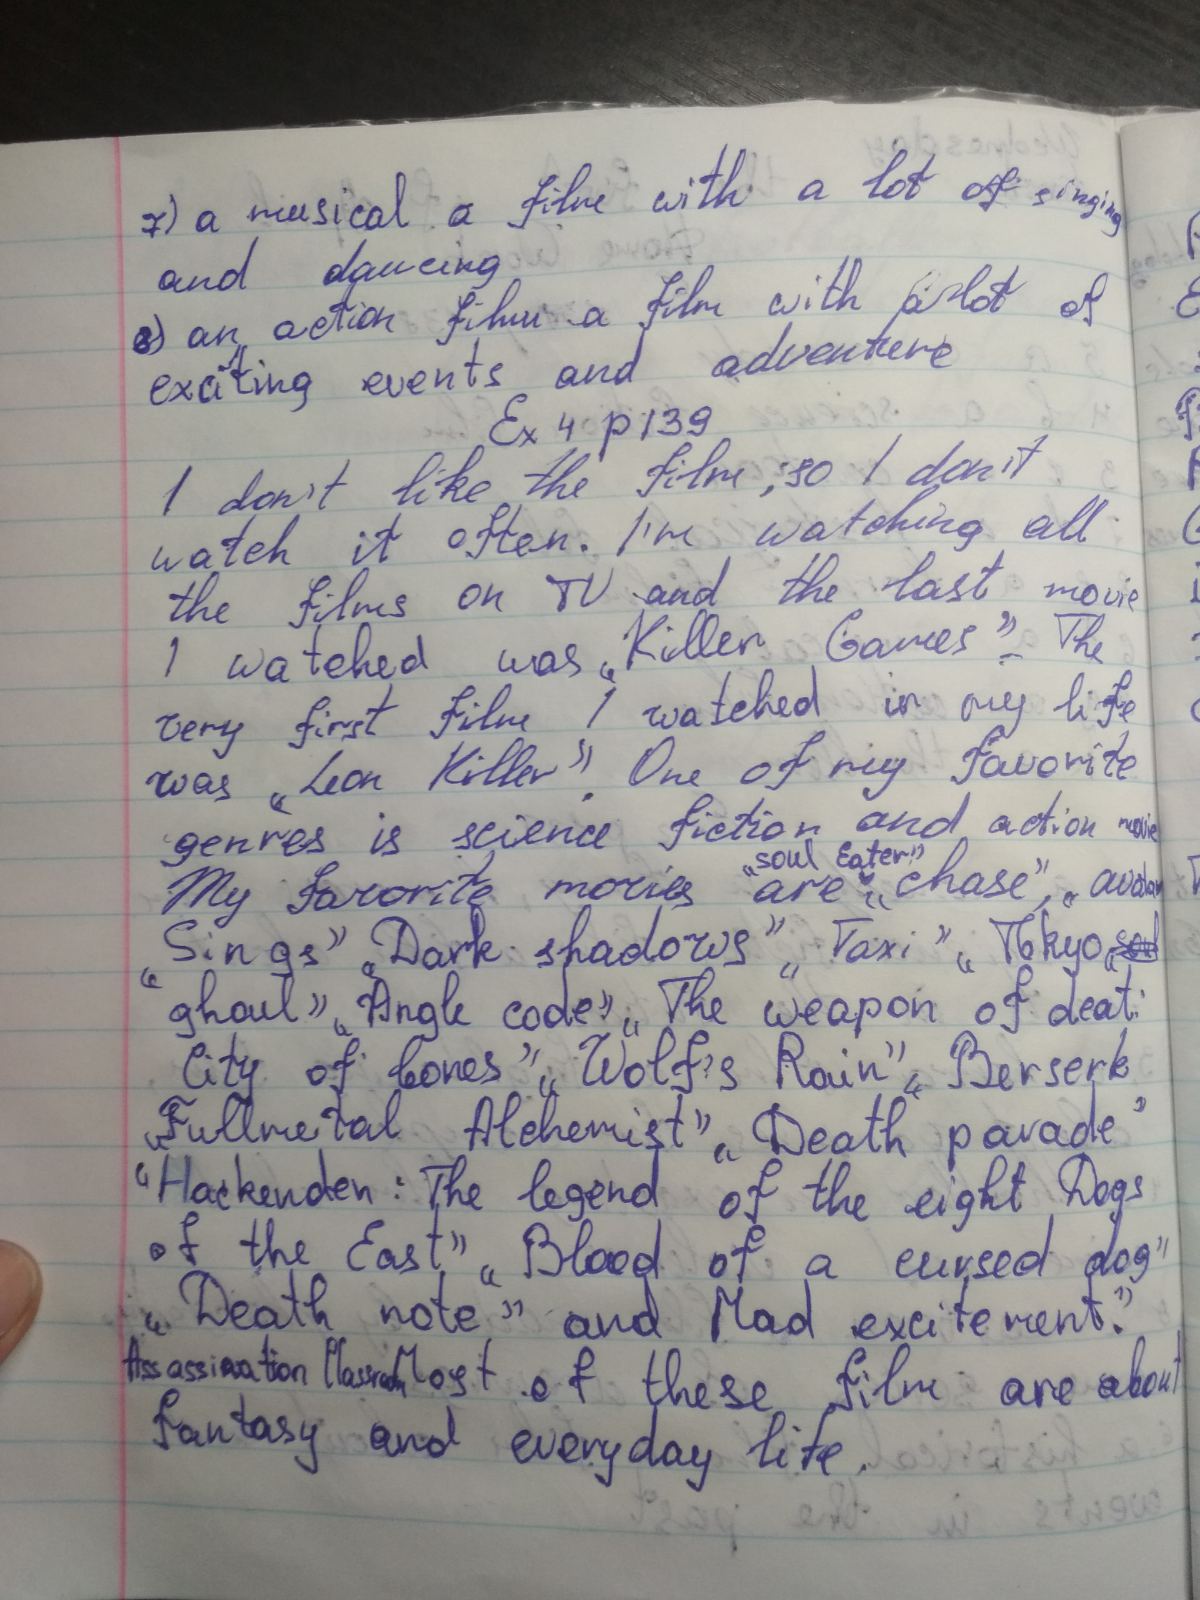 7) a musical a film with a lot of singing
and dancing
8) an action film a film with a lot of
exciting events and adventure
Ex 4 p 139
I don't like the film, so I don't
watch it often. I'm watching all
the films on TV and the last movie
I watched was „Killer Games”. The
very first film I watched in my life
was „Leon Killer”. One of my favorite
genres is science fiction and action movie
„soul Eater”
My favorite movies are „chase”, „avatar
„Sings” „Dark shadows” „Taxi” „Tokyo
ghoul” „Angle code” „The weapon of deat:
City of bones” „Wolf's Rain” „Berserk
„Fullmetal Alchemist” „Death parade”
“Hackenden: The legend of the eight Dogs
of the East” „Blood of a cursed dog”
„Death note” and Mad excitement.”
Assassination Classroom Most of these film are about
fantasy and everyday life.